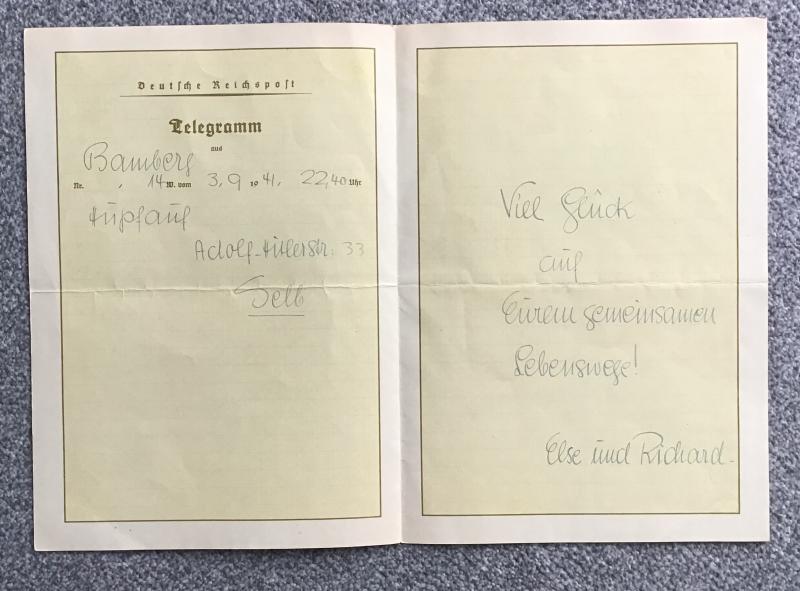 Deutsche Reichspost
Telegramm
aus
Bamberg
Nr. , 14 W. vom 3.9 19 41. 22,40 Uhr
Hüpfauf
Adolf-Hitlerstr. 33
Selb
Viel Glück
auf
Eurem gemeinsamen
Lebenswege!
Else und Richard.